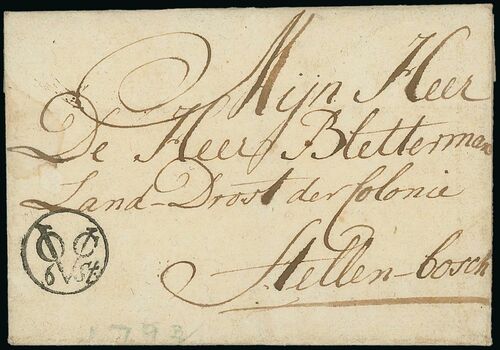 Mijn Heer
De Heer Bletterman
Land-Drost der Colonie
Stellen-bosch
6 St
1793